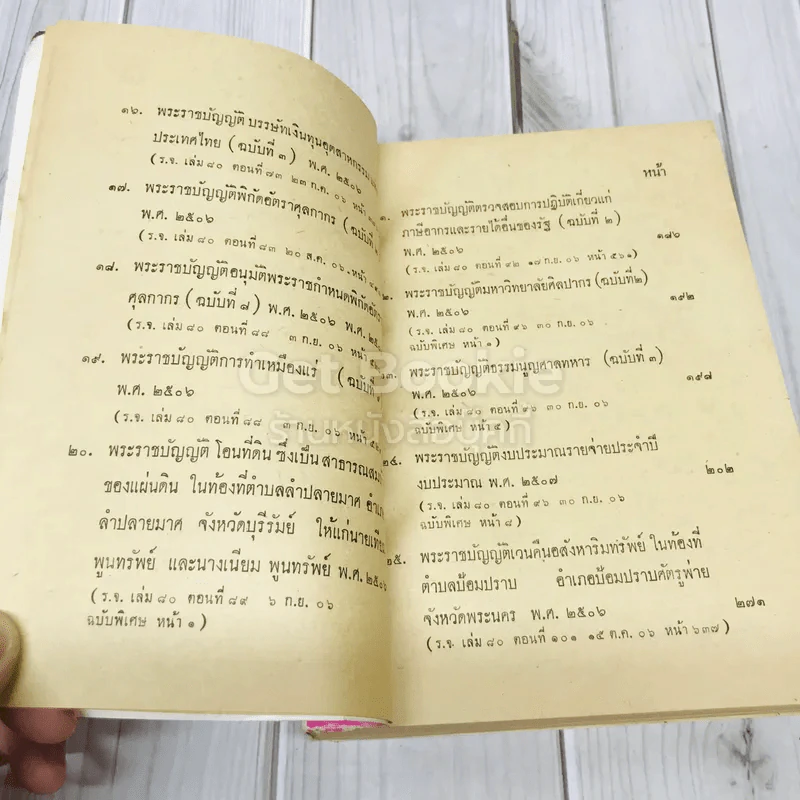 ๑๖. พระราชบัญญัติ บรรษัทเงินทุนอุตสาหกรรม
ประเทศไทย (ฉบับที่ ๓) พ.ศ. ๒๕๐๖
(ร.จ. เล่ม ๘๐ ตอนที่ ๗๓ ๒๓ ก.ค. ๐๖ หน้า
๑๗. พระราชบัญญัติพิกัดอัตราศุลกากร (ฉบับที่
พ.ศ. ๒๕๐๖
(ร.จ. เล่ม ๘๐ ตอนที่ ๘๓ ๒๐ ส.ค. ๐๖ หน้า
๑๘. พระราชบัญญัติอนุมัติพระราชกำหนดพิกัดอัตรา
ศุลกากร (ฉบับที่ ๘) พ.ศ. ๒๕๐๖ พ.ศ.
(ร.จ. เล่ม ๘๐ ตอนที่ ๘๘ ๓ ก.ย. ๐๖ หน้า
๑๙. พระราชบัญญัติการทำเหมืองแร่ (ฉบับที่
พ.ศ. ๒๕๐๖
(ร.จ. เล่ม ๘๐ ตอนที่ ๘๘ ๓ ก.ย. ๐๖ หน้า
๒๐. พระราชบัญญัติ โอนที่ดิน ซึ่งเป็น สาธารณสมบัติ
ของแผ่นดิน ในท้องที่ตำบลลำปลายมาศ อำเภอ
ลำปลายมาศ จังหวัดบุรีรัมย์ ให้แก่นายเทียน
พูนทรัพย์ และนางเนียม พูนทรัพย์ พ.ศ. ๒๕๐๖
(ร.จ. เล่ม ๘๐ ตอนที่ ๘๙ ๖ ก.ย. ๐๖
ฉบับพิเศษ หน้า ๑)
หน้า
๑. พระราชบัญญัติตรวจสอบการปฏิบัติเกี่ยวแก่
ภาษีอากรและรายได้อื่นของรัฐ (ฉบับที่ ๒)
พ.ศ. ๒๕๐๖ ๑๘๖
(ร.จ. เล่ม ๘๐ ตอนที่ ๙๒ ๑๗ ก.ย. ๐๖ หน้า ๕๖๑)
๒. พระราชบัญญัติมหาวิทยาลัยศิลปากร (ฉบับที่๒)
พ.ศ. ๒๕๐๖ ๑๙๒
(ร.จ. เล่ม ๘๐ ตอนที่ ๙๖ ๓๐ ก.ย. ๐๖
ฉบับพิเศษ หน้า ๑)
๓. พระราชบัญญัติธรรมนูญศาลทหาร (ฉบับที่ ๓)
พ.ศ. ๒๕๐๖ ๑๙๘
(ร.จ. เล่ม ๘๐ ตอนที่ ๙๖ ๓๐ ก.ย. ๐๖
ฉบับพิเศษ หน้า ๕)
๒๔. พระราชบัญญัติงบประมาณรายจ่ายประจำปี
งบประมาณ พ.ศ. ๒๕๐๗ ๒๐๒
(ร.จ. เล่ม ๘๐ ตอนที่ ๙๖ ๓๐ ก.ย. ๐๖
ฉบับพิเศษ หน้า ๘)
๒๕. พระราชบัญญัติเวนคืนอสังหาริมทรัพย์ ในท้องที่
ตำบลป้อมปราบ อำเภอป้อมปราบศัตรูพ่าย
จังหวัดพระนคร พ.ศ. ๒๕๐๖ ๒๗๑
(ร.จ. เล่ม ๘๐ ตอนที่ ๑๐๑ ๑๕ ต.ค. ๐๖ หน้า ๖๓๗)
Get Bookie
ร้านหนังสือบุ๊คกี้